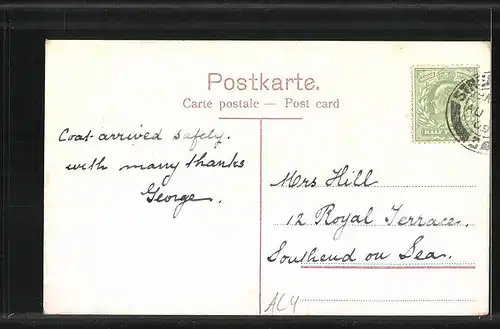 Postkarte.
Carte postale — Post card
Coat arrived safely.
with many thanks
George.
Mrs Hill
12 Royal Terrace.
Southend on Sea.
HALF
AL4